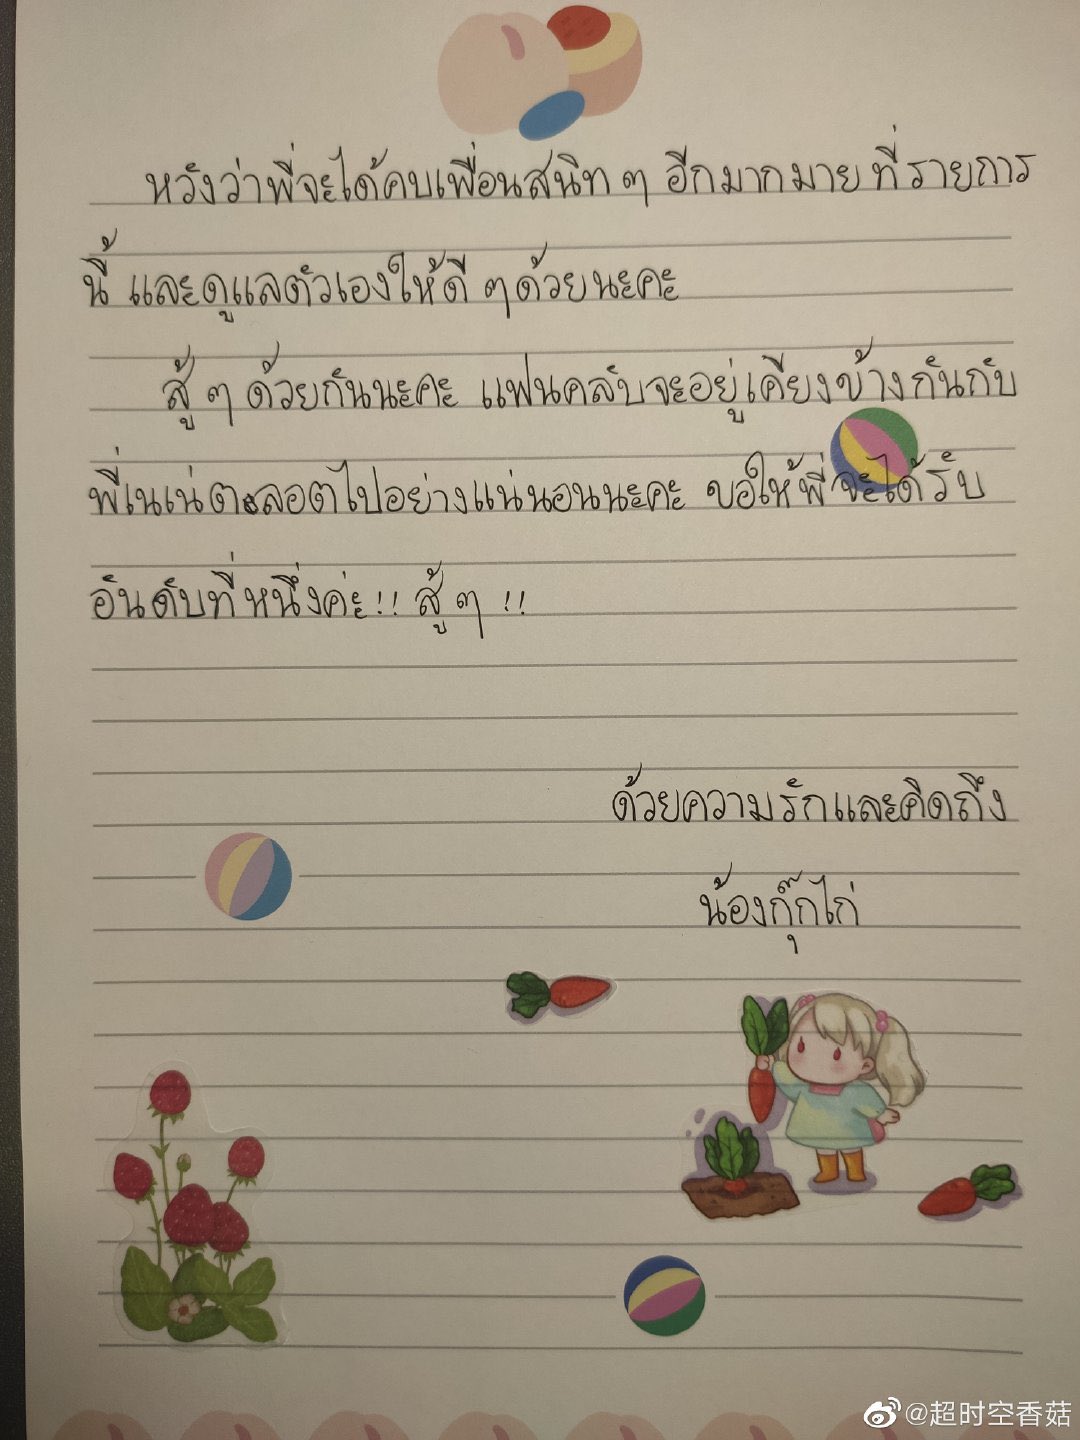 หวังว่าพี่จะได้คบเพื่อนสนิท ๆ อีกมากมาย ที่รายการ
นี้ และดูแลตัวเองให้ดี ๆ ด้วยนะคะ
สู้ ๆ ด้วยกันนะคะ แฟนคลับจะอยู่เคียงข้างกันกับ
พี่เนเน่ตลอดไปอย่างแน่นอนนะคะ ขอให้พี่จะได้รับ
อันดับที่หนึ่งค่ะ!! สู้ ๆ !!
ด้วยความรักและคิดถึง
น้องกุ๊กไก่
@超时空香菇